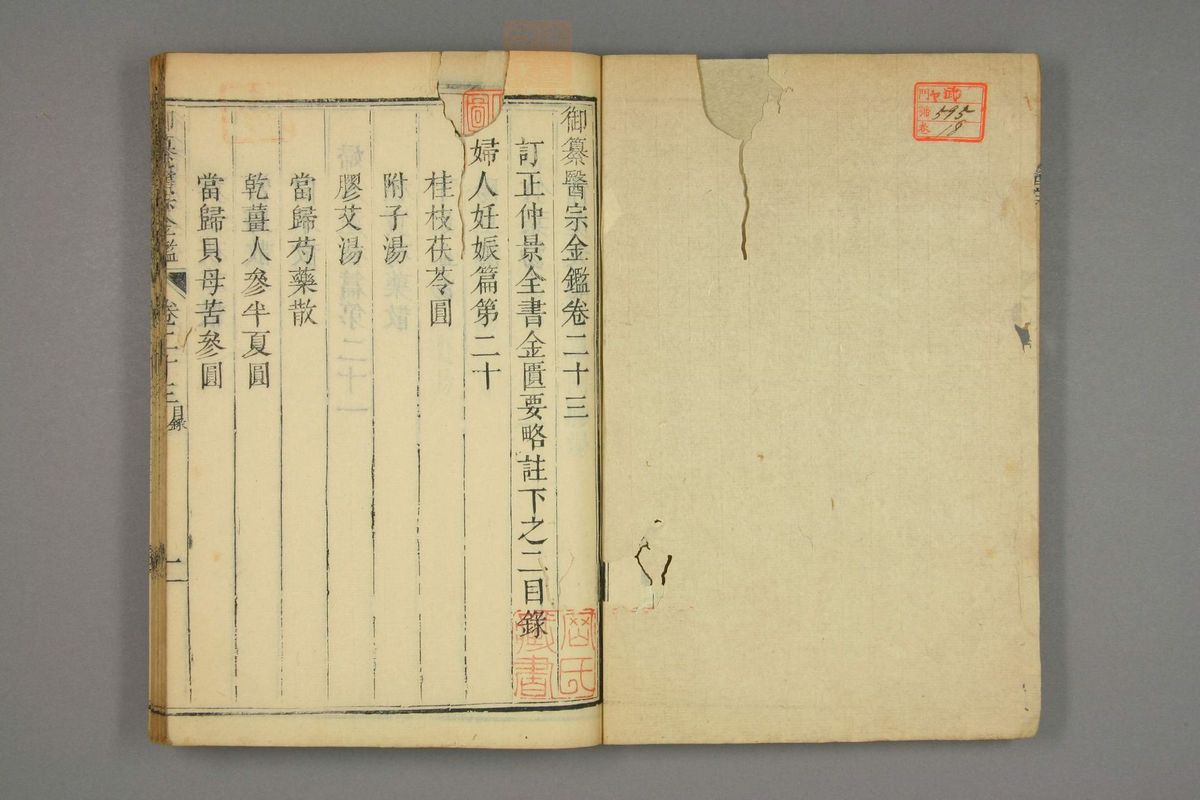 門 ヤ09
號 595
卷 18
御纂醫宗金鑑卷二十三
訂正仲景全書金匱要略註下之二目錄
婦人妊娠篇第二十
桂枝茯苓圓
附子湯
膠艾湯
當歸芍藥散
乾薑人參半夏圓
當歸貝母苦參圓
御纂醫宗金鑑 卷二十三 目錄 一
圖
藏書